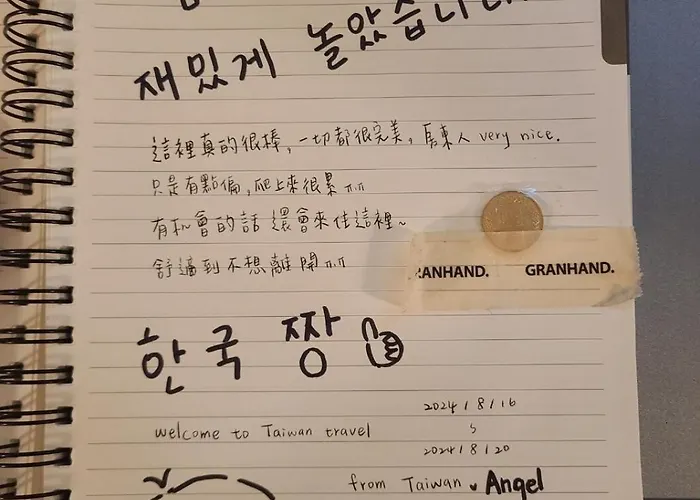 재밌게 놀았습니다
這裡真的很棒，一切都很完美，房東人 very nice.
只是有點偏，爬上來很累ㅠㅠ
有機會的話還會來住這裡~
舒適到不想離開ㅠㅠ
ANHAND. GRANHAND.
한국 짱
2024/8/16
2024/8/20
welcome to Taiwan travel
from Taiwan Angel